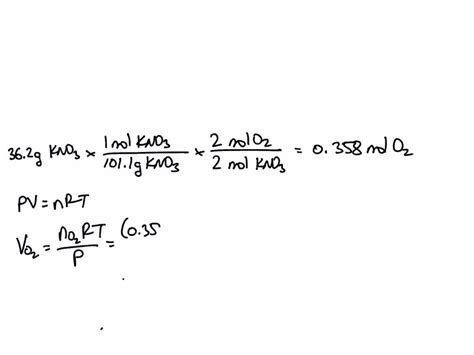 36.2g KNO₃ × 1 mol KNO₃/101.1g KNO₃ × 2 mol O₂/2 mol KNO₃ = 0.358 mol O₂
PV = nRT
V_O₂ = n_O₂RT/P = (0.35